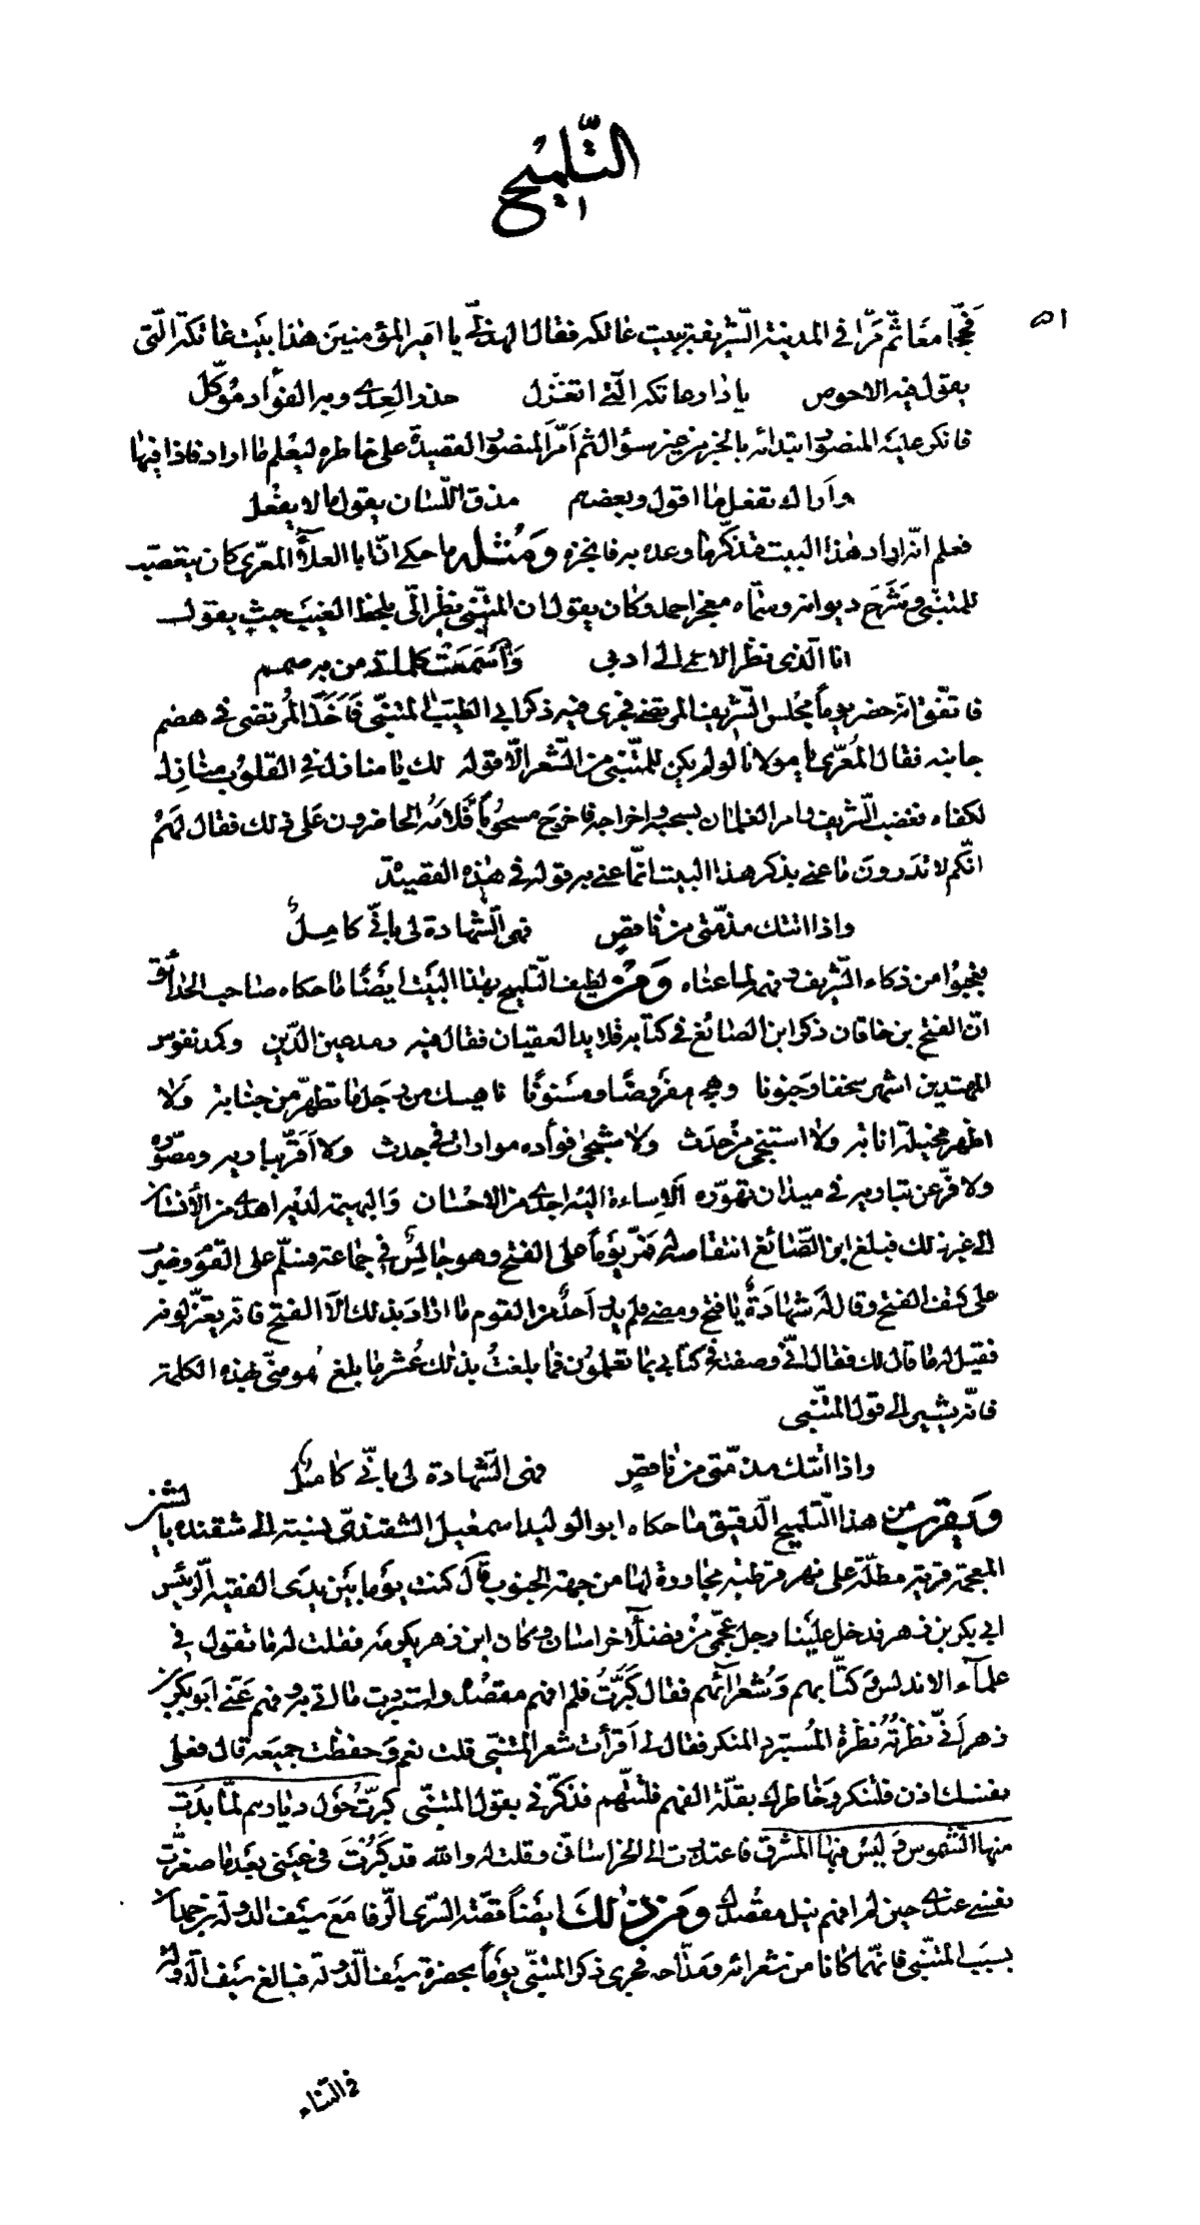 التّلميح
٥١
فحجّا معًا ثمّ مرّا في المدينة الشّريفة ببيت عاتكه فقال الهذلّي يا امير المؤمنين هذا بيت عاتكة الّتى
يقول فيه الاحوص يا دار عاتكه الّتي اتغزّل حذر العدى وبه الفؤاد موكّل
فانكر عليه المنصور ابتدائه بالخبر من غير سؤال ثم أمرّ المنصور القصيدة على خاطره ليعلم ما اراد فاذا فيها
واراك تفعل ما اقول وبعضهم مذق اللّسان يقول ما لا يفعل
فعلم انّه اراد هذا البيت فتذكّر ما وعده به فانجزه ومثله ما حكى انّ ابا العلآء المعرّى كان يتعصّب
للمتنبّى وشرح ديوانه وسمّاه معجز احمد وكان يقول ان المتنبّى نظر الىّ بلحظ الغيب حيث يقول
انا الّذى نظر الاعمى الى ادبي وأسمعت كلماتى من به صمم
فاتّفق انّه حضر يوماً مجلس الشّريف المرتضى فجرى فيه ذكر ابي الطّيّب المتنبّى فأخذ المرتضى في هضم
جانبه فقال المعرّى يا مولانا لو لم يكن للمتنبّى من الشّعر الّا قوله لك يا منازل في القلوب منازل
لكفاه فغضب الشّريف وامر الغلمان بسحبه واخراجه فاخرج مسحوبًا فلامه الحاضرون على ذلك فقال لهم
انّكم لا تدرون ما عنى بذكر هذا البيت انّما عنى به قوله في هذه القصيدة
واذا اتتك مذمّتى من ناقصٍ فهى الّشهادة لى بانّي كامل
فعجبوا من ذكاء الشّريف وفهمه لما عناه ومن لطيف التّلميح بهذا البيت ايضًا ما حكاه صاحب الحدائق
انّ الفتح بن خاقان ذكر ابن الصائغ في كتابه قلايد العقيان فقال فيه رمد عين الدّين وكمد نفوس
المهتدين اشتهر سخفا وجنونا وهجر مفروضًا ومسنونًا ناهيك من رجل ما تطهّر من جنابة ولا
اظهر مخيلة انابة ولا استنجى من حدث ولا شجى فؤاده موار ان في جدث ولا أقرّ بباريه ومصوّره
ولا فرّ عن تباريه في ميدان تهوّره الاساءة اليه اجدى من الاحسان والبهيمة لديه اهدى من الأنسان
الى غير ذلك فبلغ ابن الصّائغ انتقاصه له فمرّ يوماً على الفتح وهو جالس في جماعة فسلّم على القوم وضرب
على كتف الفتح وقال له شهادة يا فتح ومضى فلم يدر أحد من القوم ما اراد بذلك الّا الفتح فانه يغيّر لونه
فقيل له ما قال لك فقال انّي وصفته في كتابي بما تعلمون فما بلغت بذلك عشر ما بلغ هو منّى بهذه الكلمة
فانّه يشير الى قول المتنبّى
واذا اتتك مذمّتى من ناقصٍ فهى الشّهادة لى بانّي كامل
ويقرب من هذا التّلميح الدّقيق ما حكاه ابو الوليد اسمعيل الشقندىّ نسبة الى شقنده بالشين
المعجمة قرية مطلّة على نهر قرطبه مجاورة لها من جهة الجنوب قال كنت يوما بين يدى الفقيه الرّئيس
ابي بكر بن زهر فدخل علينا رجل عجمّى من فضلآء خراسان وكان ابن زهر يكرمه فقلت له ما تقول في
علمآء الاندلس وكتّابهم وشعرائهم فقال كبّرت فلم افهم مقصده واستبردت ما اتى به وفهم عنّى ابو بكر بن
زهر أنّي نظرته نظرة المستبرد المنكر فقال لى أقرأت شعر المتنبّى قلت نعم وحفظت جميعه قال فعلى
نفسك اذن فلتنكر وخاطرك بقلّة الفهم فلتتّهم فذكّرني بقول المتنبّى كبّرت حول ديارهم لمّا بدت
منها الشّموس وليس فيها المشرق فاعتذرت الى الخراسانى وقلت له والله قد كبرت في عينى بعد ما صغرت
نفسى عندى حين لم افهم نبل مقصدك ومن ذلك ايضاً قصّة السّرى الرّفا مع سيف الدولة بن حمدان
بسبب المتنبّى فانّهما كانا من شعرائه ومدّاحه فجرى ذكر المتنبّى يوماً بحضرة سيف الدّولة فبالغ سيف الدّولة
في الثناء